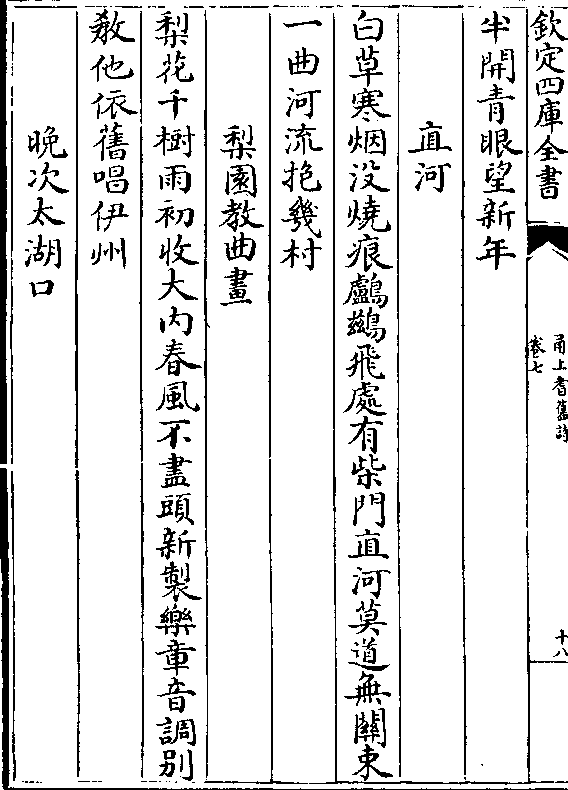 欽定四庫全書
甬上耆舊詩
卷七
十八
半開青眼望新年
直河
白草寒烟没燒痕鸕鷀飛處有柴門直河莫道無關束
一曲河流抱幾村
梨園教曲畫
梨花千樹雨初收大内春風不盡頭新製樂章音調别
教他依舊唱伊州
晚次太湖口